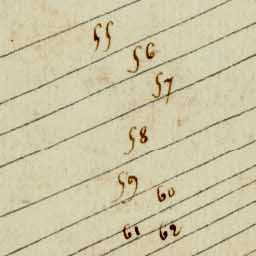 55
56
57
58
59
60
61 62